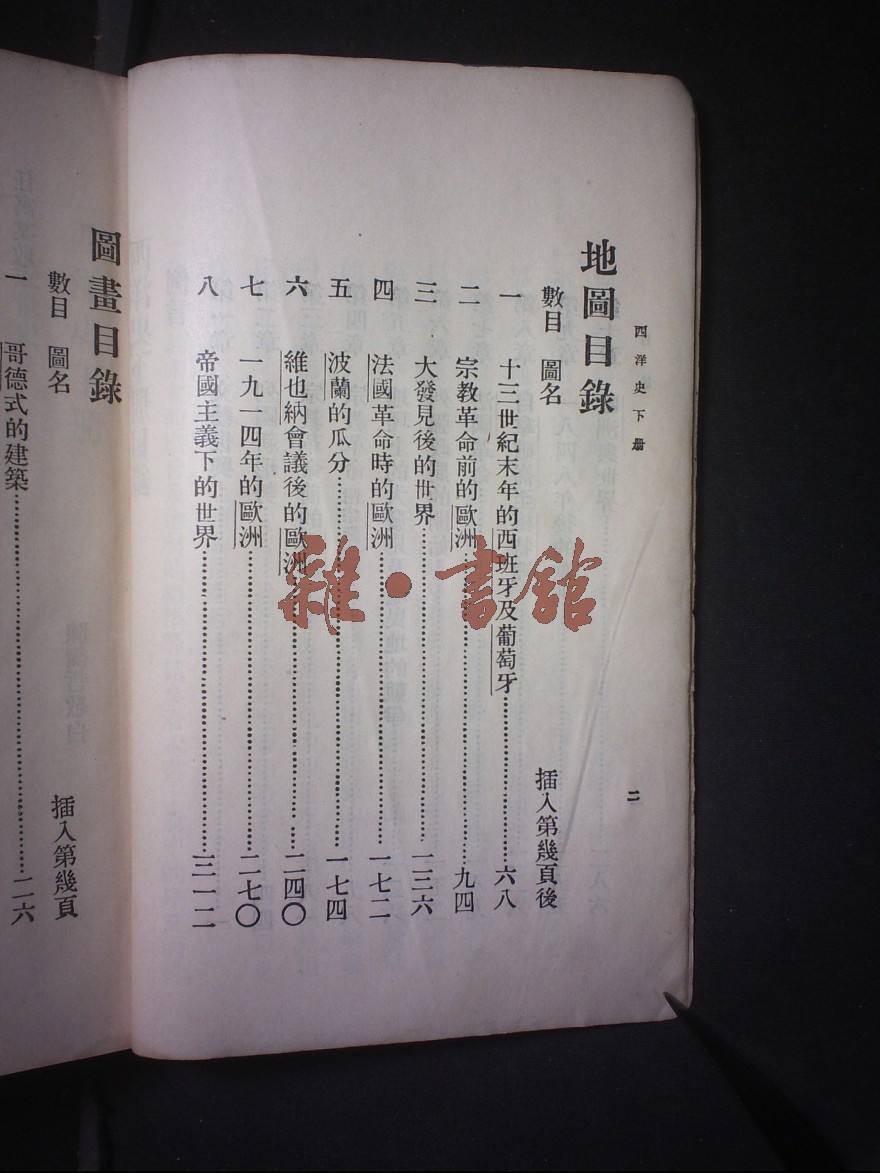 西洋史下册
二
地圖目錄
數目 圖名 插入第幾頁後
一 十三世紀末年的西班牙及葡萄牙………六八
二 宗教革命前的歐洲………九四
三 大發見後的世界………一三六
四 法國革命時的歐洲………一七二
五 波蘭的瓜分………一七四
六 維也納會議後的歐洲………二四〇
七 一九一四年的歐洲………二七〇
八 帝國主義下的世界………三一二
圖畫目錄
數目 圖名 插入第幾頁
一 哥德式的建築………二六
雜·書館